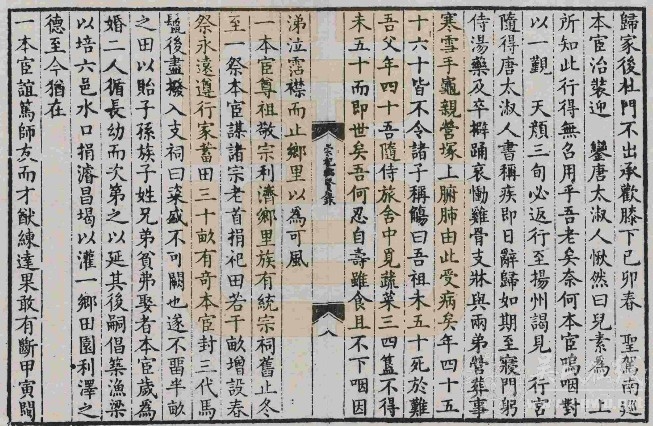 歸家後杜門不出承歡膝下己卯春　聖駕南廵
本宦治裝迎　鑾唐太淑人愀然曰兒素為　上
所知此行得無名用乎吾老矣奈何本宦嗚咽對
以一觀　天顏三旬必返行至揚州謁見　行宮
隨得唐太淑人書稱疾即日辭歸如期至寢門躬
侍湯藥及卒擗踊哀慟雞骨支牀與兩弟營葬事
寒雪手龜親營塚上腑肺由此受病矣年四十五
十六十皆不令諸子稱觴曰吾祖未五十死於難
吾父年四十吾隨侍旅舍中見蔬菜三四簋不得
未五十而即世矣吾何忍自壽雖食且不下咽因
八
涕泣霑襟而止鄉里以為可風
一本宦尊祖敬宗利濟鄉里族有統宗祠舊止冬
至一祭本宦謀諸宗老首捐祀田若干畝增設春
祭永遠遵行家蓄田三十畝有奇本宦封三代馬
鬣後盡撥入支祠曰粢盛不可闕也遂不畱半畝
之田以貽子孫族子姓兄弟貧弗娶者本宦歲為
婚二人循長幼而次第之以延其後嗣倡築漁梁
以培六邑水口捐濬昌堨以灌一鄉田園利澤之
德至今猶在
一本宦誼篤師友而才猷練達果敢有斷甲寅閩